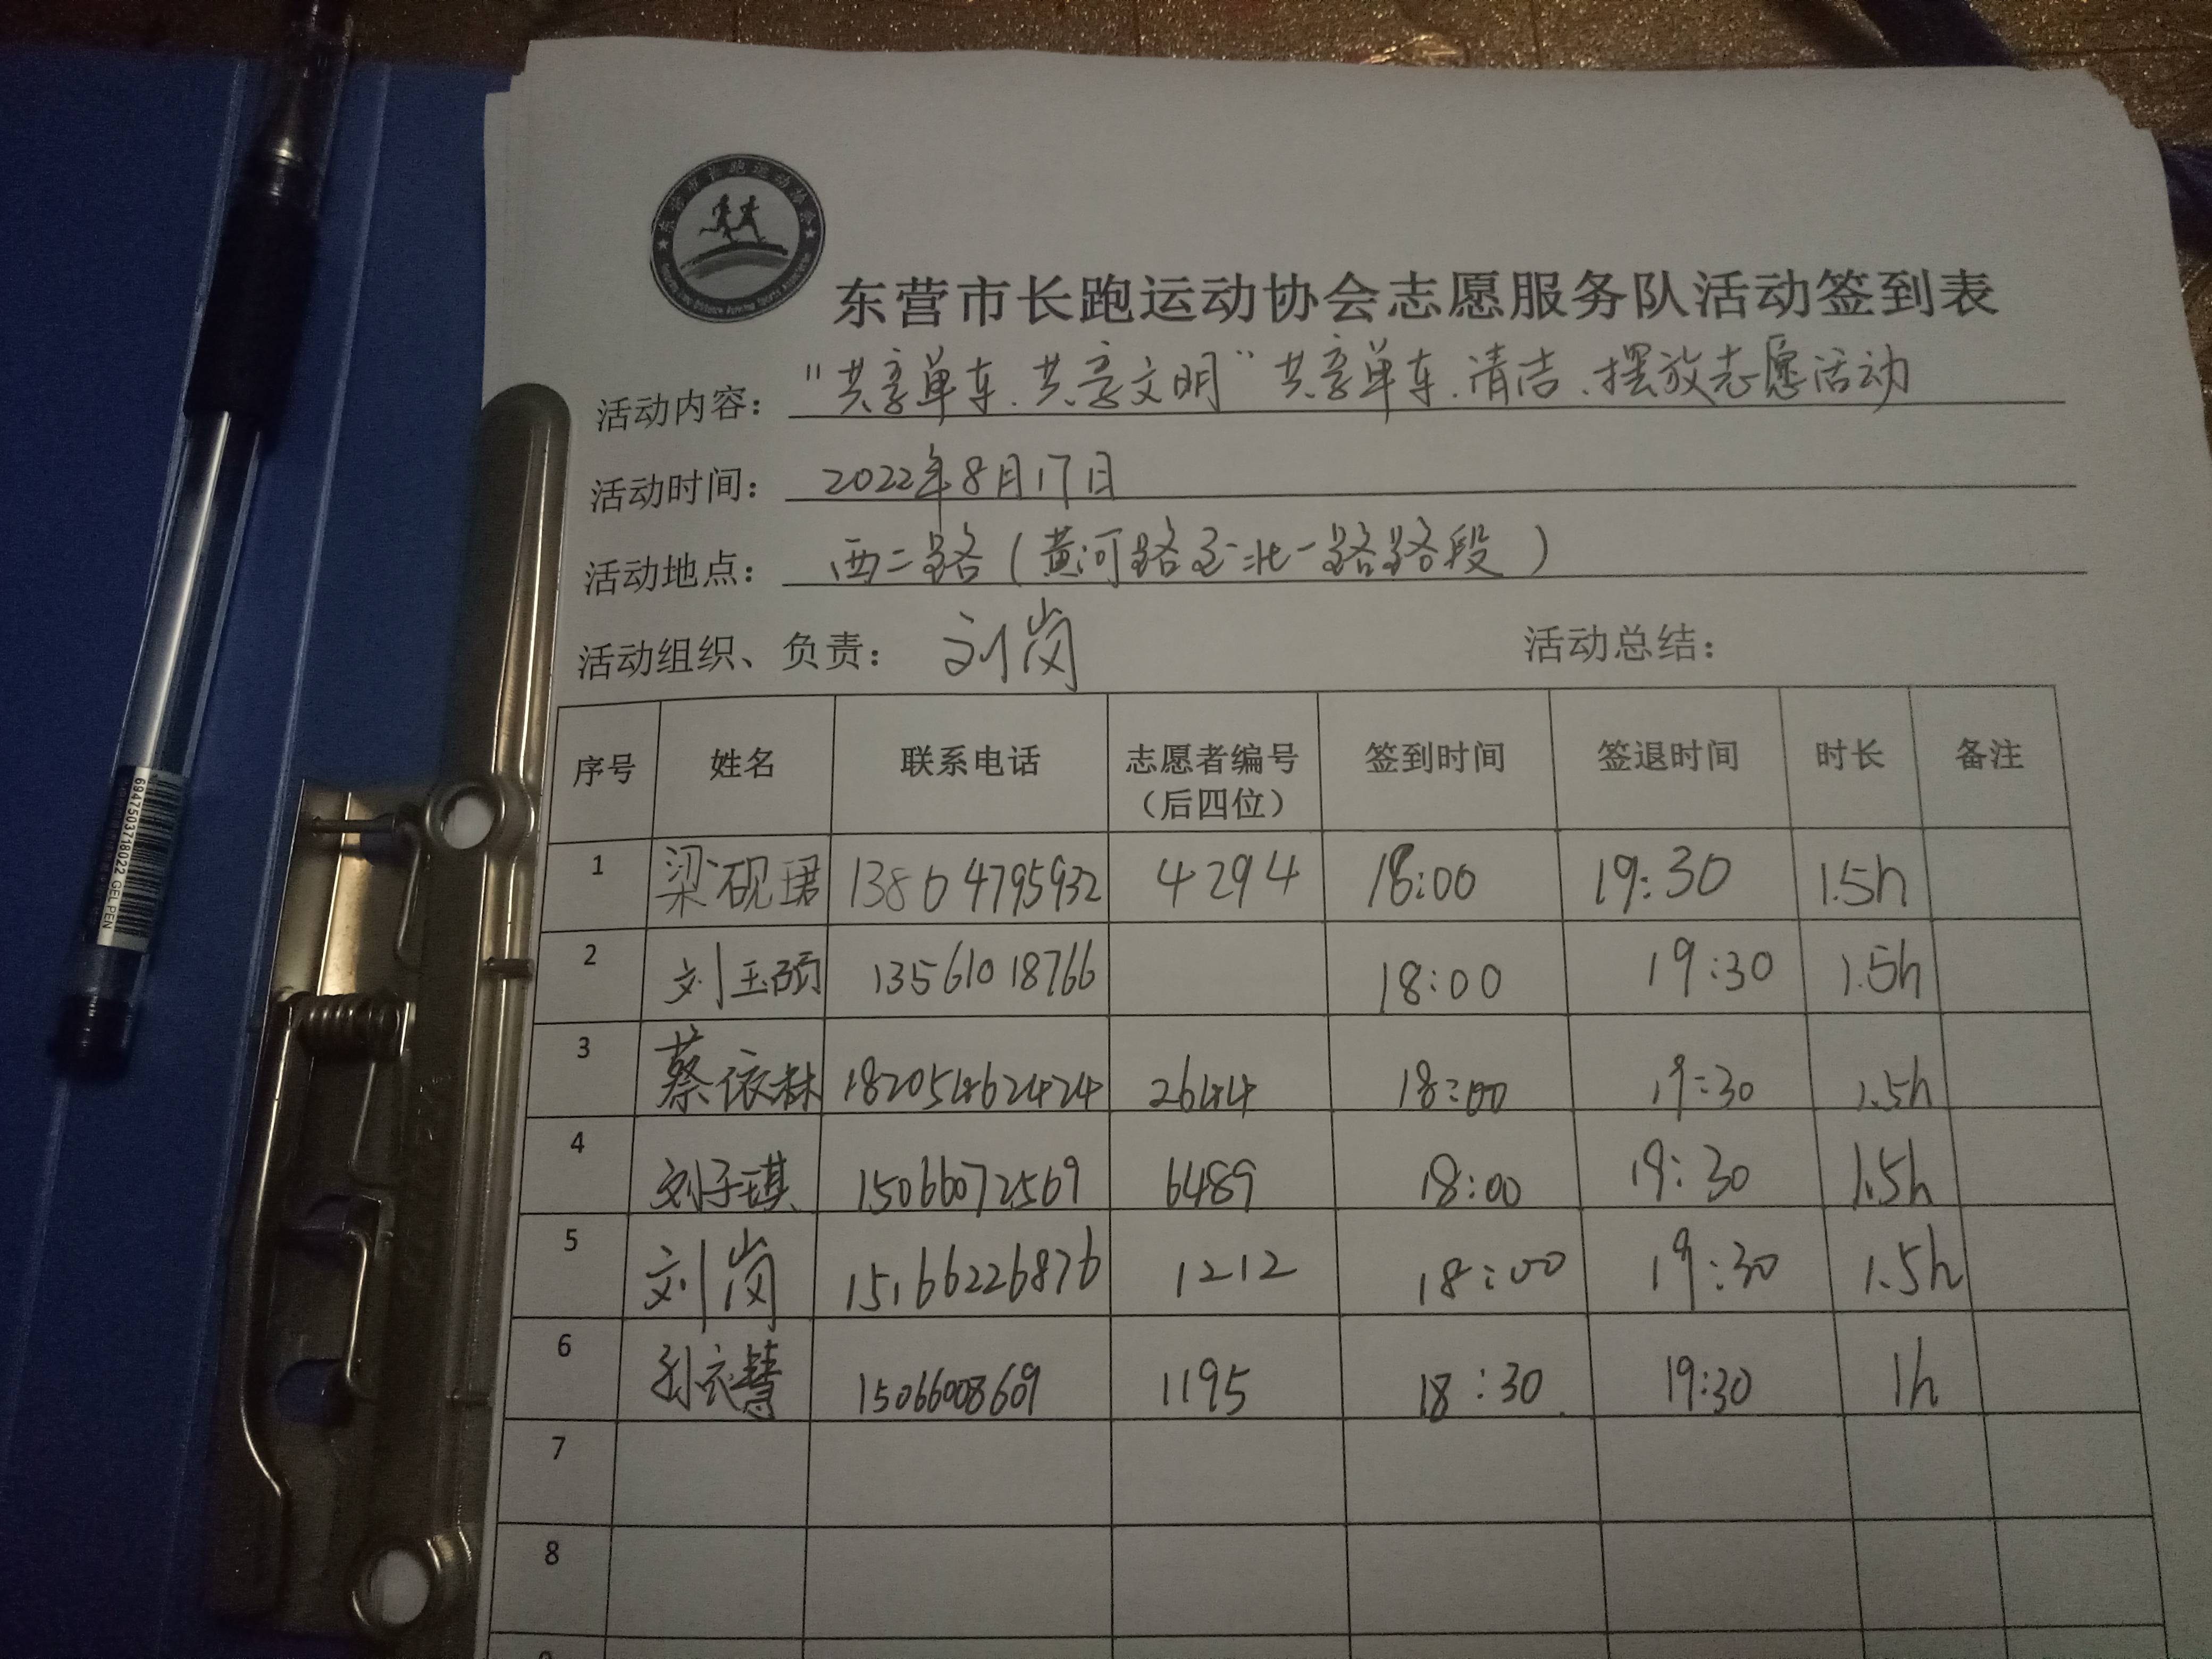 东营市长跑运动协会
东营市长跑运动协会志愿服务队活动签到表
活动内容： "共享单车、共享文明"共享单车、清洁、摆放志愿活动
活动时间： 2022年8月17日
活动地点： 西二路(黄河路至北一路路段)
活动组织、负责： 刘岗 活动总结：
序号 姓名 联系电话 志愿者编号（后四位） 签到时间 签退时间 时长 备注
1 梁砚珺 13804795932 4294 18:00 19:30 1.5h
2 刘玉 13561018766 18:00 19:30 1.5h
3 蔡依林 18205462424 2644 18:00 19:30 1.5h
4 刘子琪 15066072569 6489 18:00 19:30 1.5h
5 刘岗 15166226876 1212 18:00 19:30 1.5h
6 孙衣慧 15066008609 1195 18:30 19:30 1h
7
8
6947503718022 GEL PEN